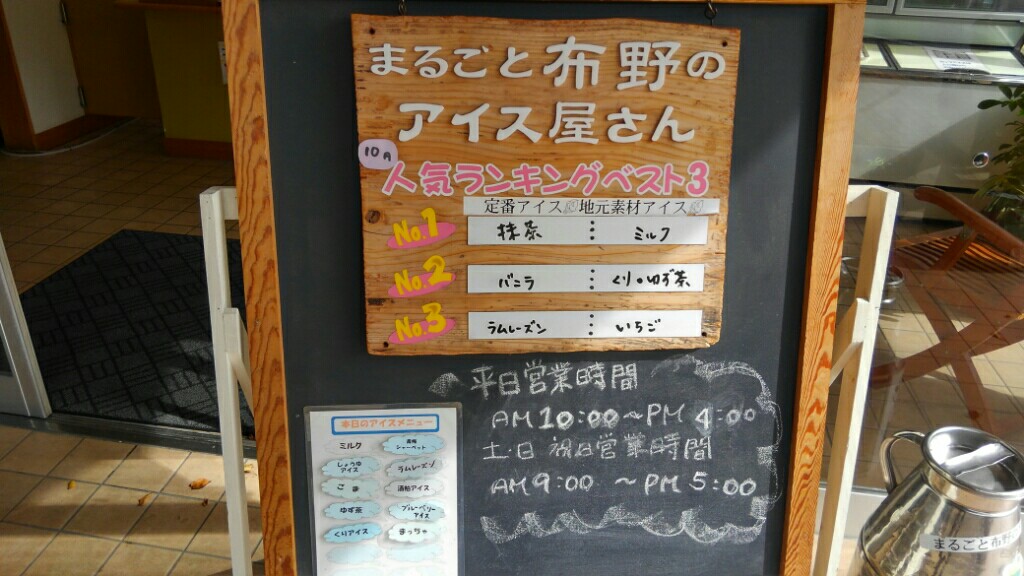 まるごと布野の
アイス屋さん
10月
人気ランキングベスト3
定番アイス 地元素材アイス
No.1 抹茶 : ミルク
No.2 バニラ : くり・ゆず茶
No.3 ラムレーズン : いちご
平日営業時間
AM10:00~PM4:00
土・日 祝日営業時間
AM9:00 ~PM5:00
本日のアイスメニュー
ミルク
シャーベット
しょうゆ
アイス
ラムレーズン
ごま
酒粕アイス
ゆず茶
ブルーベリー
アイス
くりアイス
まっちゃ
まるごと布野